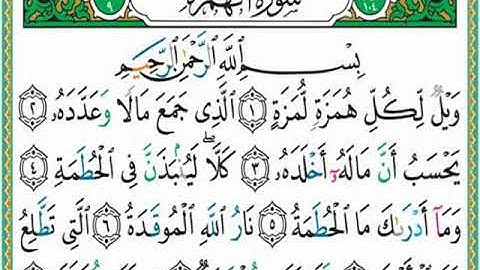 سورة الهمزة
٩ ١٠٤
بِسْمِ ٱللَّهِ ٱلرَّحْمَٰنِ ٱلرَّحِيمِ
وَيْلٌ لِّكُلِّ هُمَزَةٍ لُّمَزَةٍ ١ ٱلَّذِى جَمَعَ مَالًا وَعَدَّدَهُۥ ٢
يَحْسَبُ أَنَّ مَالَهُۥٓ أَخْلَدَهُۥ ٣ كَلَّا ۖ لَيُنۢبَذَنَّ فِى ٱلْحُطَمَةِ ٤
وَمَآ أَدْرَىٰكَ مَا ٱلْحُطَمَةُ ٥ نَارُ ٱللَّهِ ٱلْمُوقَدَةُ ٦ ٱلَّتِى تَطَّلِعُ